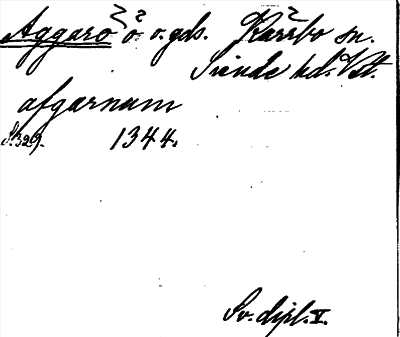 Aggarö ö. o. gds. Kärrbo sn.
Siende hd. Vstl.
afgarnum
S. 329. 1344.
Sv. dipl. V.